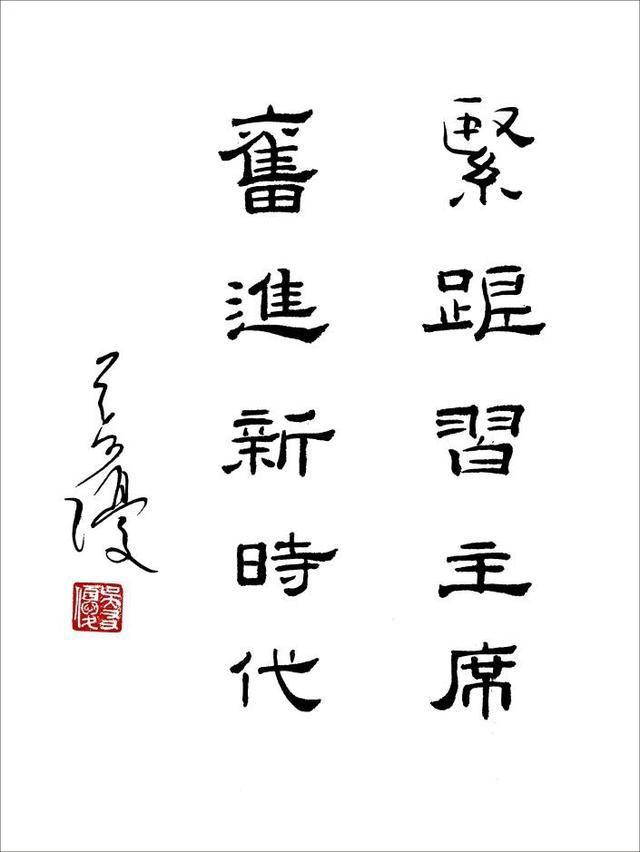 緊跟習主席
奮進新時代